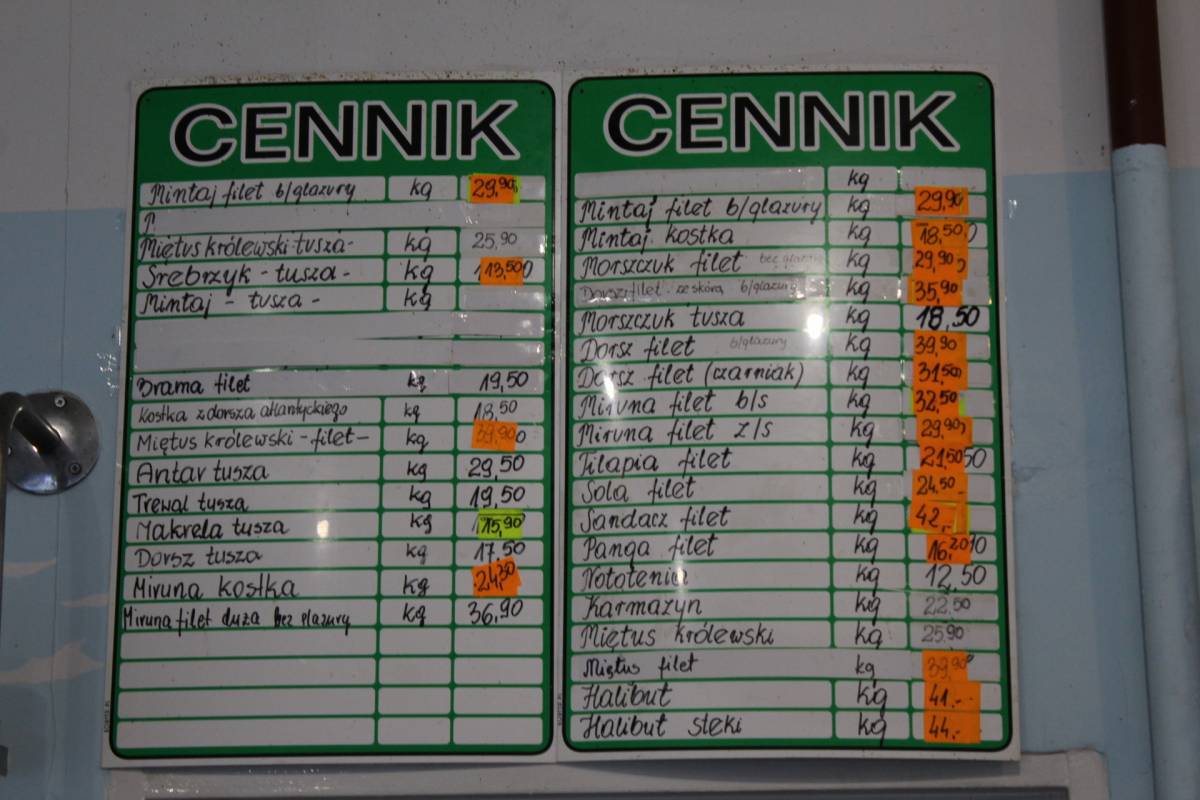 CENNIK
Mintaj filet b/glazury kg 29,90
Miętus królewski tusza- kg 25,90
Srebrzyk - tusza - kg 13,50
Mintaj - tusza - kg
Brama filet kg 19,50
Kostka z dorsza atlantyckiego kg 18,50
Miętus królewski - filet - kg 39,90
Antar tusza kg 29,50
Trewal tusza kg 19,50
Makrela tusza kg 15,90
Dorsz tusza kg 17,50
Miruna kostka kg 24,30
Miruna filet duża bez glazury kg 36,90
CENNIK
kg
Mintaj filet b/glazury kg 29,90
Mintaj kostka kg 18,50
Morszczuk filet bez glazury kg 29,90
Dorsz filet ze skórą b/glazury kg 35,90
Morszczuk tusza kg 18,50
Dorsz filet b/glazury kg 39,90
Dorsz filet (czarniak) kg 31,50
Miruna filet b/s kg 32,50
Miruna filet z/s kg 29,90
Tilapia filet kg 21,50
Sola filet kg 24,50
Sandacz filet kg 42,-
Panga filet kg 16,20
Nototenia kg 12,50
Karmazyn kg 22,50
Miętus królewski kg 25,90
Miętus filet kg 39,90
Halibut kg 41.-
Halibut steki kg 44.-